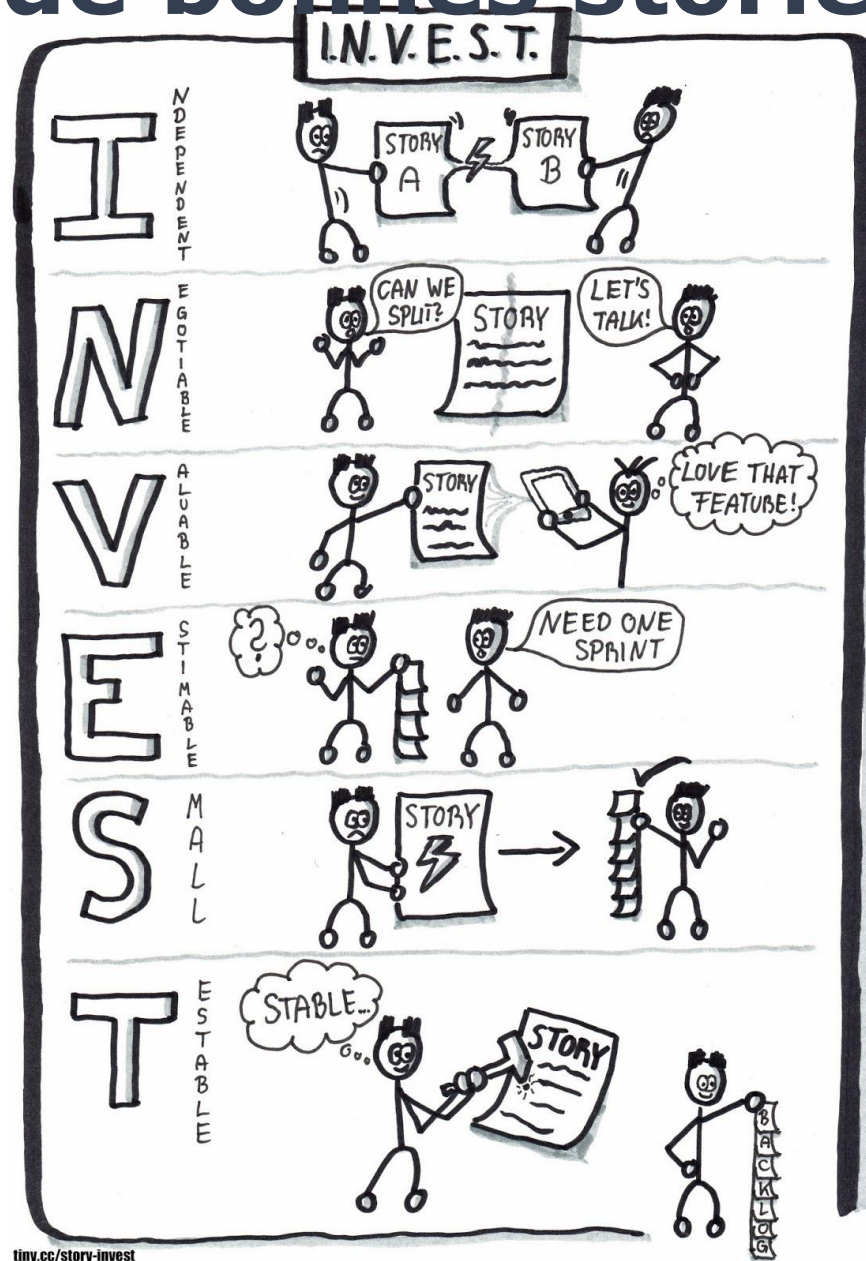 de bonnes storie
I.N.V.E.S.T.
INDEPENDENT
STORY
A
STORY
B
NEGOTIABLE
CAN WE
SPLIT?
STORY
LET'S
TALK!
VALUABLE
STORY
LOVE THAT
FEATURE!
ESTIMABLE
?
NEED ONE
SPRINT
SMALL
STORY
TESTABLE
STABLE...
STORY
BACKLOG
tiny.cc/story-invest